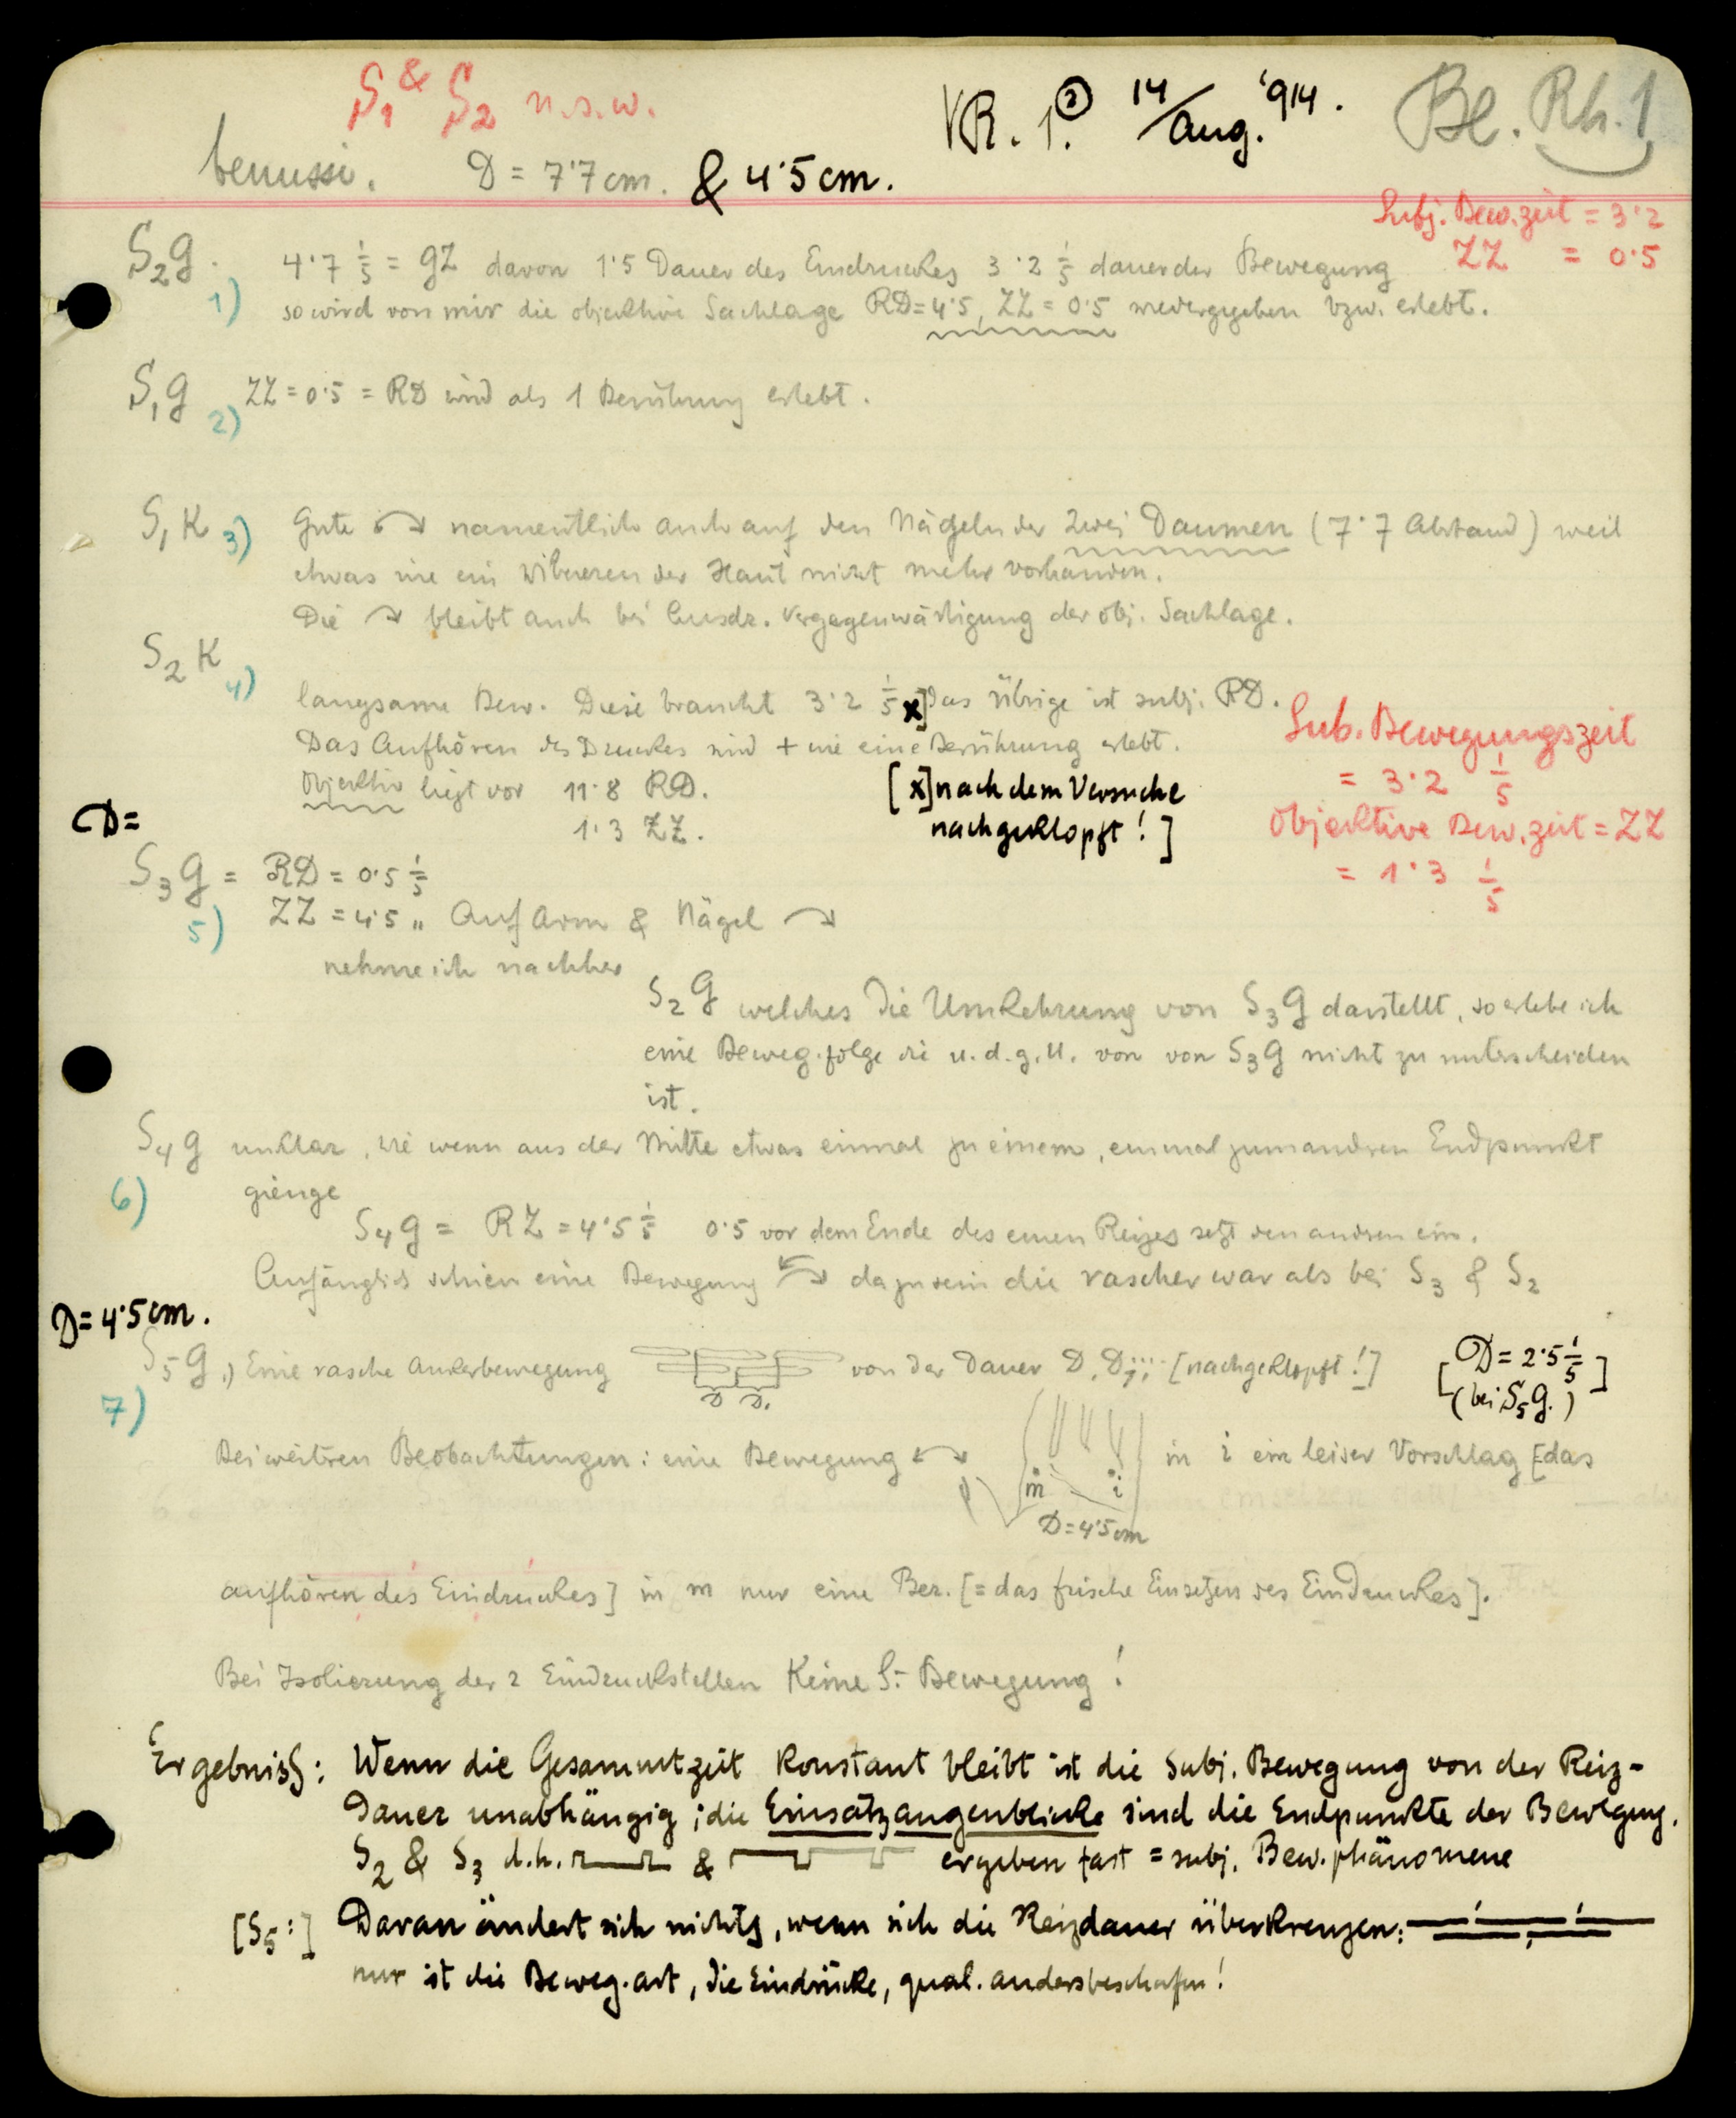 S1 & S2 u.s.w.
VR. 1. ② 14/Aug. '914.
Be. Rh. 1
benussi. D = 7·7 cm. & 4·5 cm.
Subj. Bew.zeit = 3·2
ZZ = 0·5
S2g. 4·7 1/5 = gZ davon 1·5 Dauer des Eindruckes 3·2 1/5 dauer der Bewegung
1) so wird von mir die objektive Sachlage RD=4·5, ZZ = 0·5 wiedergegeben bzw. erlebt.
S1g 2) ZZ = 0·5 = RD wird als 1 Berührung erlebt.
S1K 3) Gute namentlich auch auf den Nägeln der zwei Daumen (7·7 Abstand) weil
etwas wie ein Vibrieren der Haut nicht mehr vorhanden.
Die bleibt auch bei Ausdr. Vergegenwärtigung der obj. Sachlage.
S2K
4) langsame Bew. Diese braucht 3·2 1/5 x] Das Übrige ist subj. RD.
Das Aufhören des Druckes wird + wie eine Berührung erlebt.
Objektiv liegt vor 11·8 RD.
1·3 ZZ.
[x] nach dem Versuche
nachgeklopft! ]
Sub. Bewegungszeit
= 3·2 1/5
Objektive Bew.zeit = ZZ
= 1·3 1/5
D=
S3g = RD = 0·5 1/5
5) ZZ = 4·5 " Auf Arm & Nägel
nehme ich nachher
S2g welches die Umkehrung von S3g darstellt, so erlebe ich
eine Beweg.folge die u.d.g.U. von von S3g nicht zu unterscheiden
ist.
S4g unklar, wie wenn aus der Mitte etwas einmal zu einem, einmal zum andren Endpunkt
6) gienge
S4g = RZ = 4·5 1/5 0·5 vor dem Ende des einen Reizes setzt den andren ein.
Anfänglich schien eine Bewegung da zu sein die rascher war als bei S3 & S2
D= 4·5 cm.
S5g.) Eine rasche Ankerbewegung von der Dauer D, D, [nachgeklopft!]
D D,
[D = 2·5 1/5
(bei S5g.)]
7)
Bei weitren Beobachtungen: eine Bewegung in i ein leiser Vorschlag [das
m i
D=4·5 cm
aufhören des Eindruckes] in m nur eine Ber. [= das frische Einsetzen des Eindruckes].
Bei Isolierung der 2 Eindruckstellen Keine S- Bewegung!
Ergebniß: Wenn die Gesammtzeit konstant bleibt ist die Subj. Bewegung von der Reiz-
dauer unabhängig; die Einsatzaugenblicke sind die Endpunkte der Bewegung.
S2 & S3 d.h. & ergeben fast = subj. Bew.phänomene
[S5:] Daran ändert sich nichts, wenn sich die Reizdauer überkreuzen:
nur ist die Beweg.art, die Eindrücke, qual. anders beschafen!